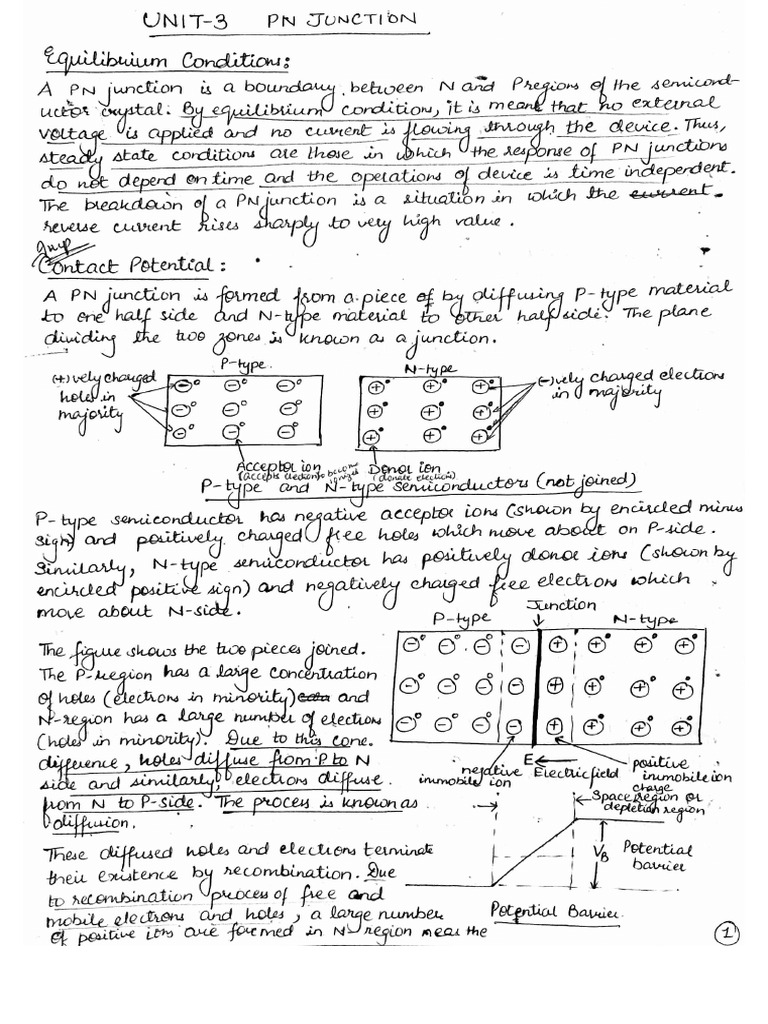 UNIT-3 PN JUNCTION
Equilibrium Conditions:
A PN junction is a boundary between N and P regions of the semicond-
uctor crystal. By equilibrium condition, it is meant that no external
voltage is applied and no current is flowing through the device. Thus,
steady state conditions are those in which the response of PN junctions
do not depend on time and the operations of device is time independent.
The breakdown of a PN junction is a situation in which the current
reverse current rises sharply to very high value.
Imp
Contact Potential:
A PN junction is formed from a piece of by diffusing P-type material
to one half side and N-type material to other half side. The plane
dividing the two zones is known as a junction.
P-type
N-type
(+)vely charged
holes in
majority
(-)vely charged electrons
in majority
Acceptor ion
(accepts electron) to become
ionized
Donor ion
(donate electron)
P-type and N-type semiconductors (not joined)
P-type semiconductor has negative acceptor ions (shown by encircled minus
sign) and positively charged free holes which move about on P-side.
Similarly, N-type semiconductor has positively donor ions (shown by
encircled positive sign) and negatively charged free electron which
move about N-side.
Junction
P-type
N-type
The figure shows the two pieces joined.
The P-region has a large concentration
of holes (electrons in minority) and
N-region has a large number of electrons
(holes in minority). Due to this conc.
difference, holes diffuse from P to N
side and similarly, electrons diffuse
from N to P-side. The process is known as
diffusion.
negative
immobile ion
E
Electric field
positive
immobile ion
charge
Space region or
depletion region
VB
Potential
barrier
Potential Barrier.
These diffused holes and electrons terminate
their existence by recombination. Due
to recombination process of free and
mobile electrons and holes, a large number
of positive ions are formed in N region near the
1